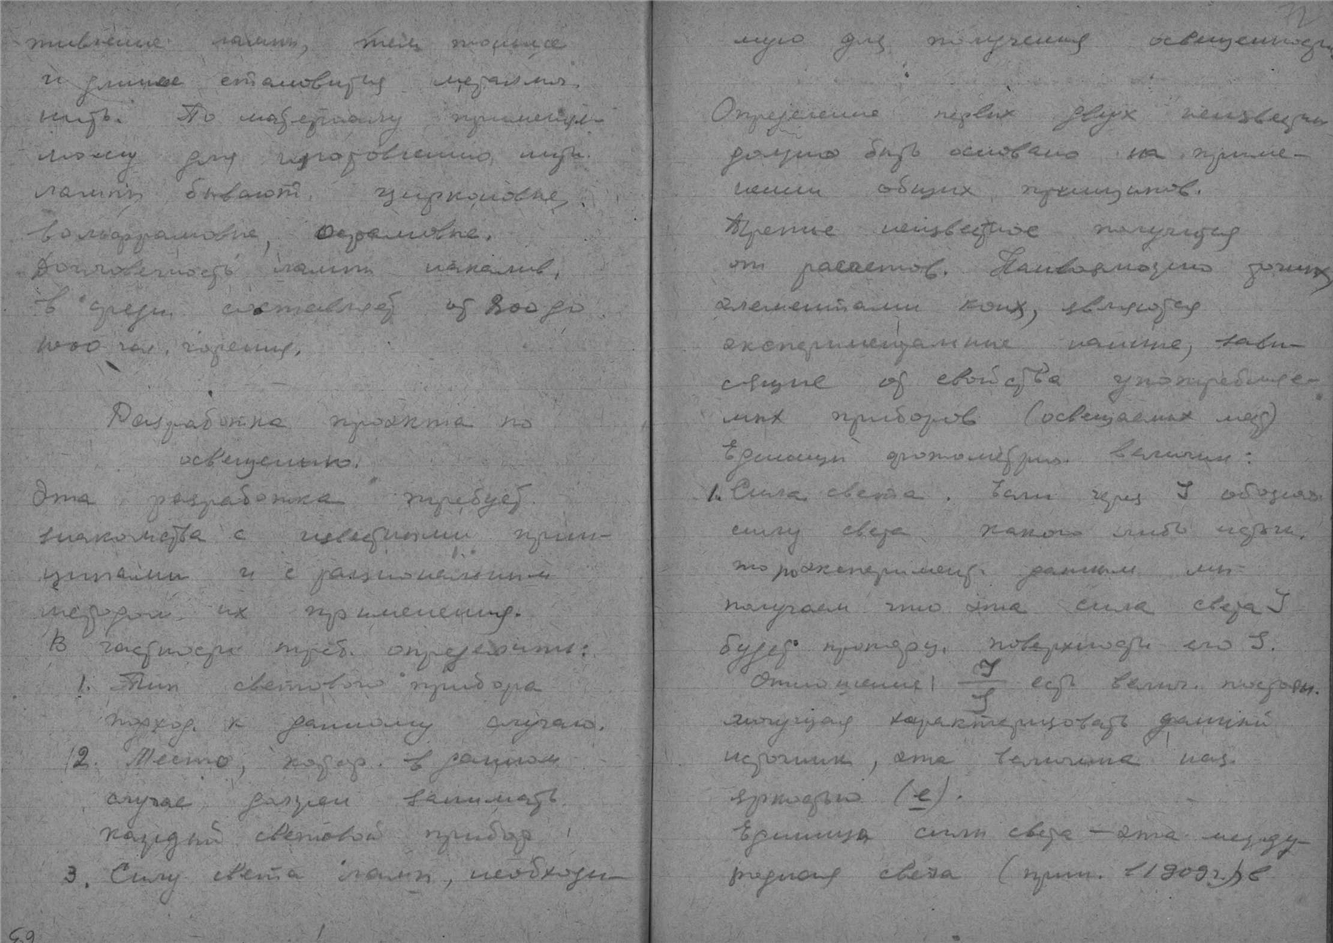 лампы, тем тоньше
и длинее становится металлич.
нить. По материалу применяе-
мому для изготовления нити
лампы бывают цирконовые,
вольфрамовые, осрамовые.
Долговечность лампы накалив.
в средн. составляет от 800 до
1000 час. горения.
Разработка проэкта по
освещению.
Эта разработка требует
знакомства с известными прин-
ципами и с рациональным
методом их применения.
В частности треб. определить:
1. Тип светового прибора
подход. к данному случаю.
2. Место, котор. в данном
случае должен занимать
каждый световой прибор
3. Силу света ламп, необходи-
59
72
мую для получения освещенности
Определение первых двух неизвестных
должно быть основано на приме-
нении общих принципов.
Третье неизвестное получится
от расчетов.
элементами коих, являются
экспериментальные данные, зави-
сящие от свойства употребляе-
мых приборов (освещаемых мест)
Единицы фотометрич. величин:
1. Сила света. Если через J обознач.
силу света какого либо источн.
то по эксперимент. данным мы
получаем что эта сила света J
будет пропорц. поверхности его S.
Отношение J/S есть велич. постоян.
могущая характеризовать данный
источник, эта величина наз.
яркостью (e).
Единица силы света — это между-
родная свеча (прин. в 1909 г.) в